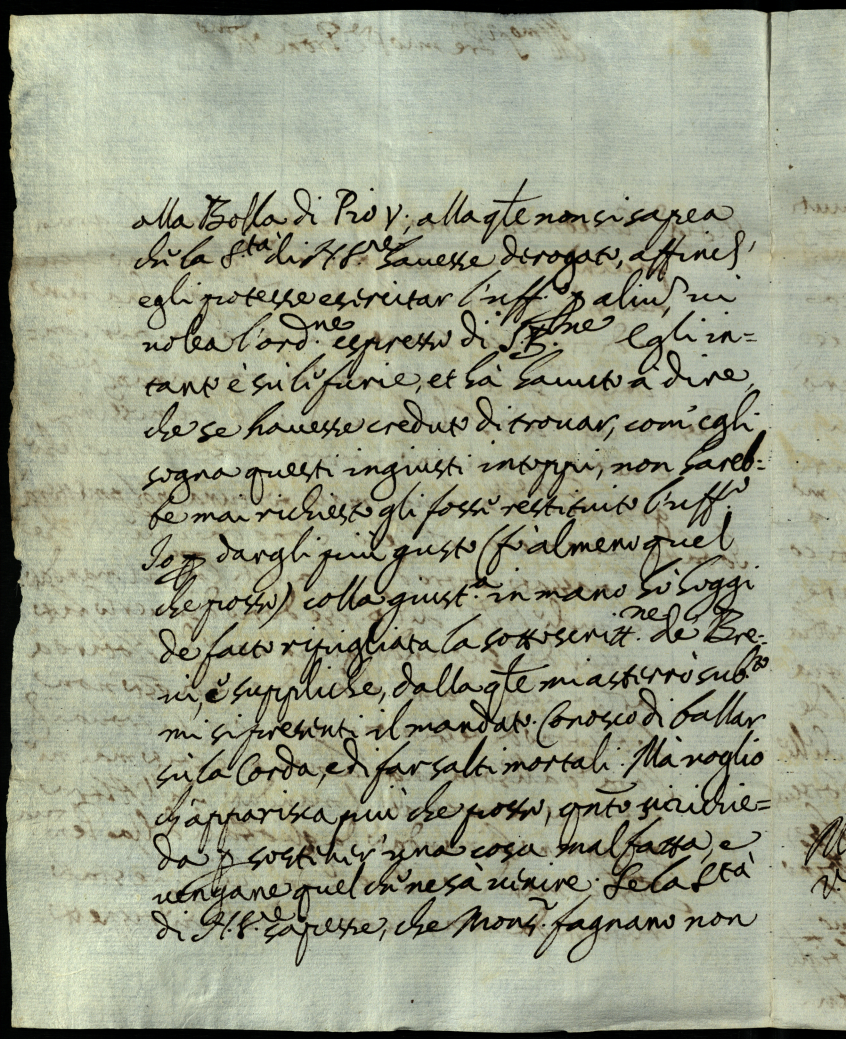 alla Bolla di Pio V; alla q̃le non si sapea
che la S.tà di N.S.re hauesse derogato, affinch'
egli potesse esercitar l'uff.º, p aliud ui
uolea l'ord.ne espresso di Egli in=
tanto è sù le furie, et hà hauuto à dire,
che se hauesse creduto di trouar, com'egli
sogna questi ingiusti intoppi, non hareb=
be mai richiesto gli fosse restituito l'uff.º
Io p dargli più gusto (fò almeno quel
che posso) colla giust.a in mano hò hoggi
de facto ripigliata la sottoscritt.ne de Bre=
ui, e suppliche, dalla q̃le mi asterrò sub.to
mi si presenti il mandato. Conosco di ballar
sù la Corda, e di far salti mortali. Mà uoglio
ch'apparisca più che posso, q̃nto si richie=
da p sostener' una cosa mal fatta, e
uengane quel che ne sà uenire. Se la S.tà
di N.S.re sapesse, che Mons.r fagnano non